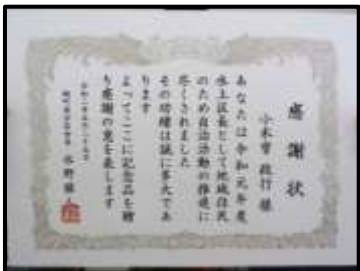 感謝状
小木曽 政行 様
あなたは令和元年度
水上区長として地域住民
のため自治活動の推進に
尽くされました
その功績は誠に多大であ
ります
よってここに記念品を贈
り感謝の意を表します
水野